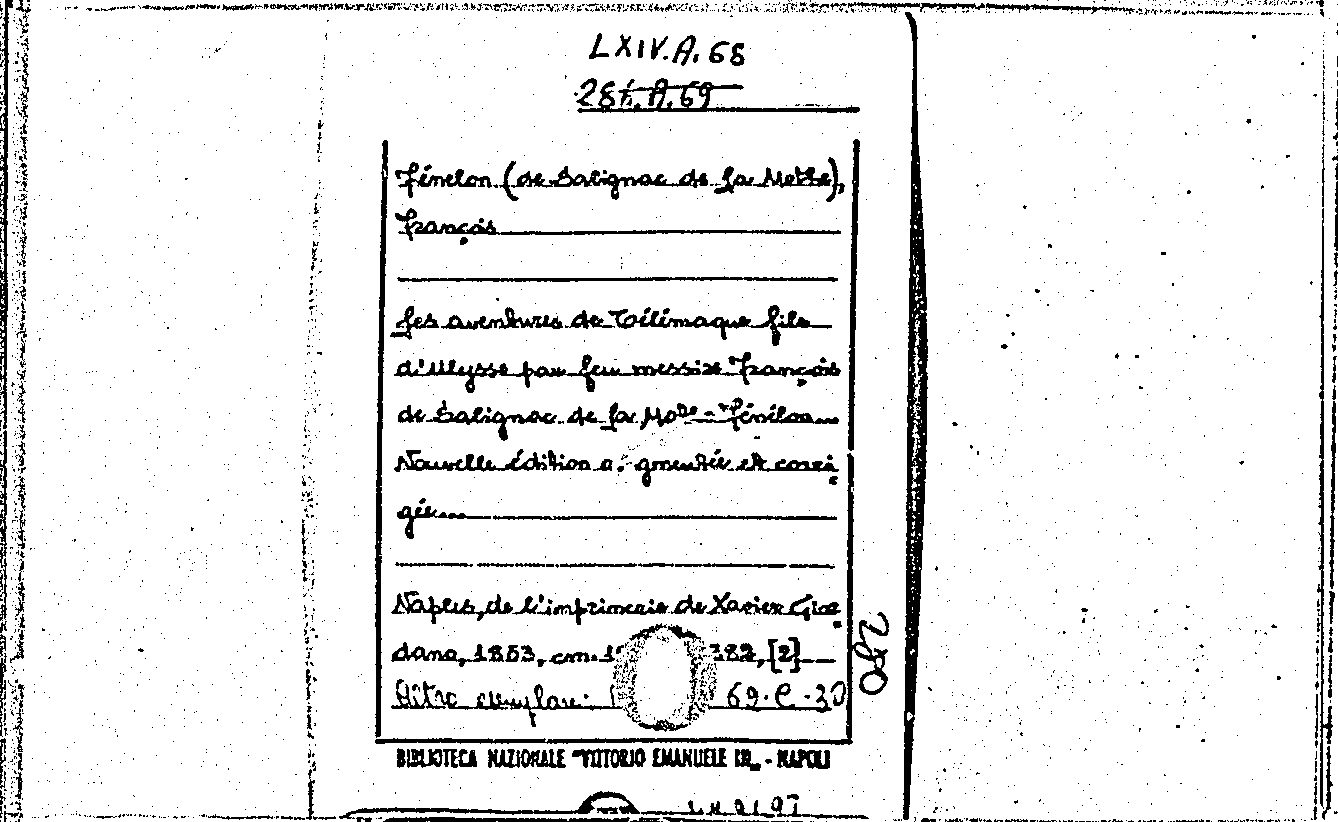 LXIV.A.68
284.A.69
Fénelon (de Salignac de La Mothe),
François
Les aventures de Télémaque fils
d'Ulysse par feu messire François
de Salignac de La Motte-Fénélon...
Nouvelle édition gmentée et corri
gée...
Naples, de l'imprimerie de Xavier Gior
dano, 1853, cm. 382, [2]
Altro esemplare: 69.C.30
BIBLIOTECA NAZIONALE "VITTORIO EMANUELE III" - NAPOLI